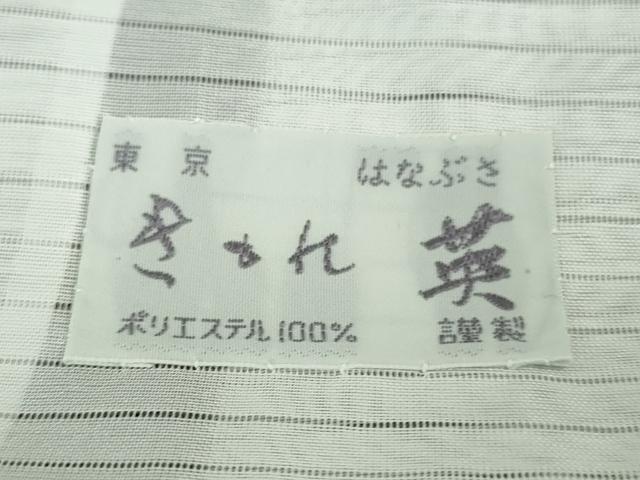 東京
はなぶさ
英
ポリエステル100%
謹製